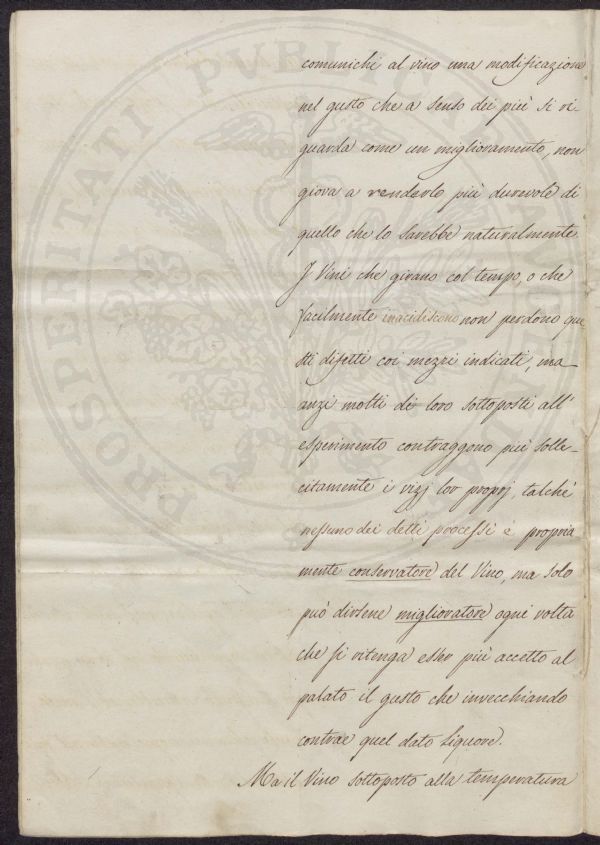 comunichi al vino una modificazione
nel gusto che a senso dei più si ri-
guarda come un miglioramento, non
giova a renderlo più durevole di
quello che lo sarebbe naturalmente.
I Vini che girano col tempo, o che
facilmente inacidiscono non perdono que
sti difetti coi mezzi indicati, ma
anzi molti di loro sottoposti all'
esperimento contraggono più solle-
citamente i vizj lor proprj, talchè
nessuno dei detti processi è propria
mente conservatore del Vino, ma solo
può dirsene miglioratore ogni volta
che si ritenga esser più accetto al
palato il gusto che invecchiando
contrae quel dato liquore.
Ma il Vino sottoposto alla temperatura
PROSPERITATI PUBLICAE